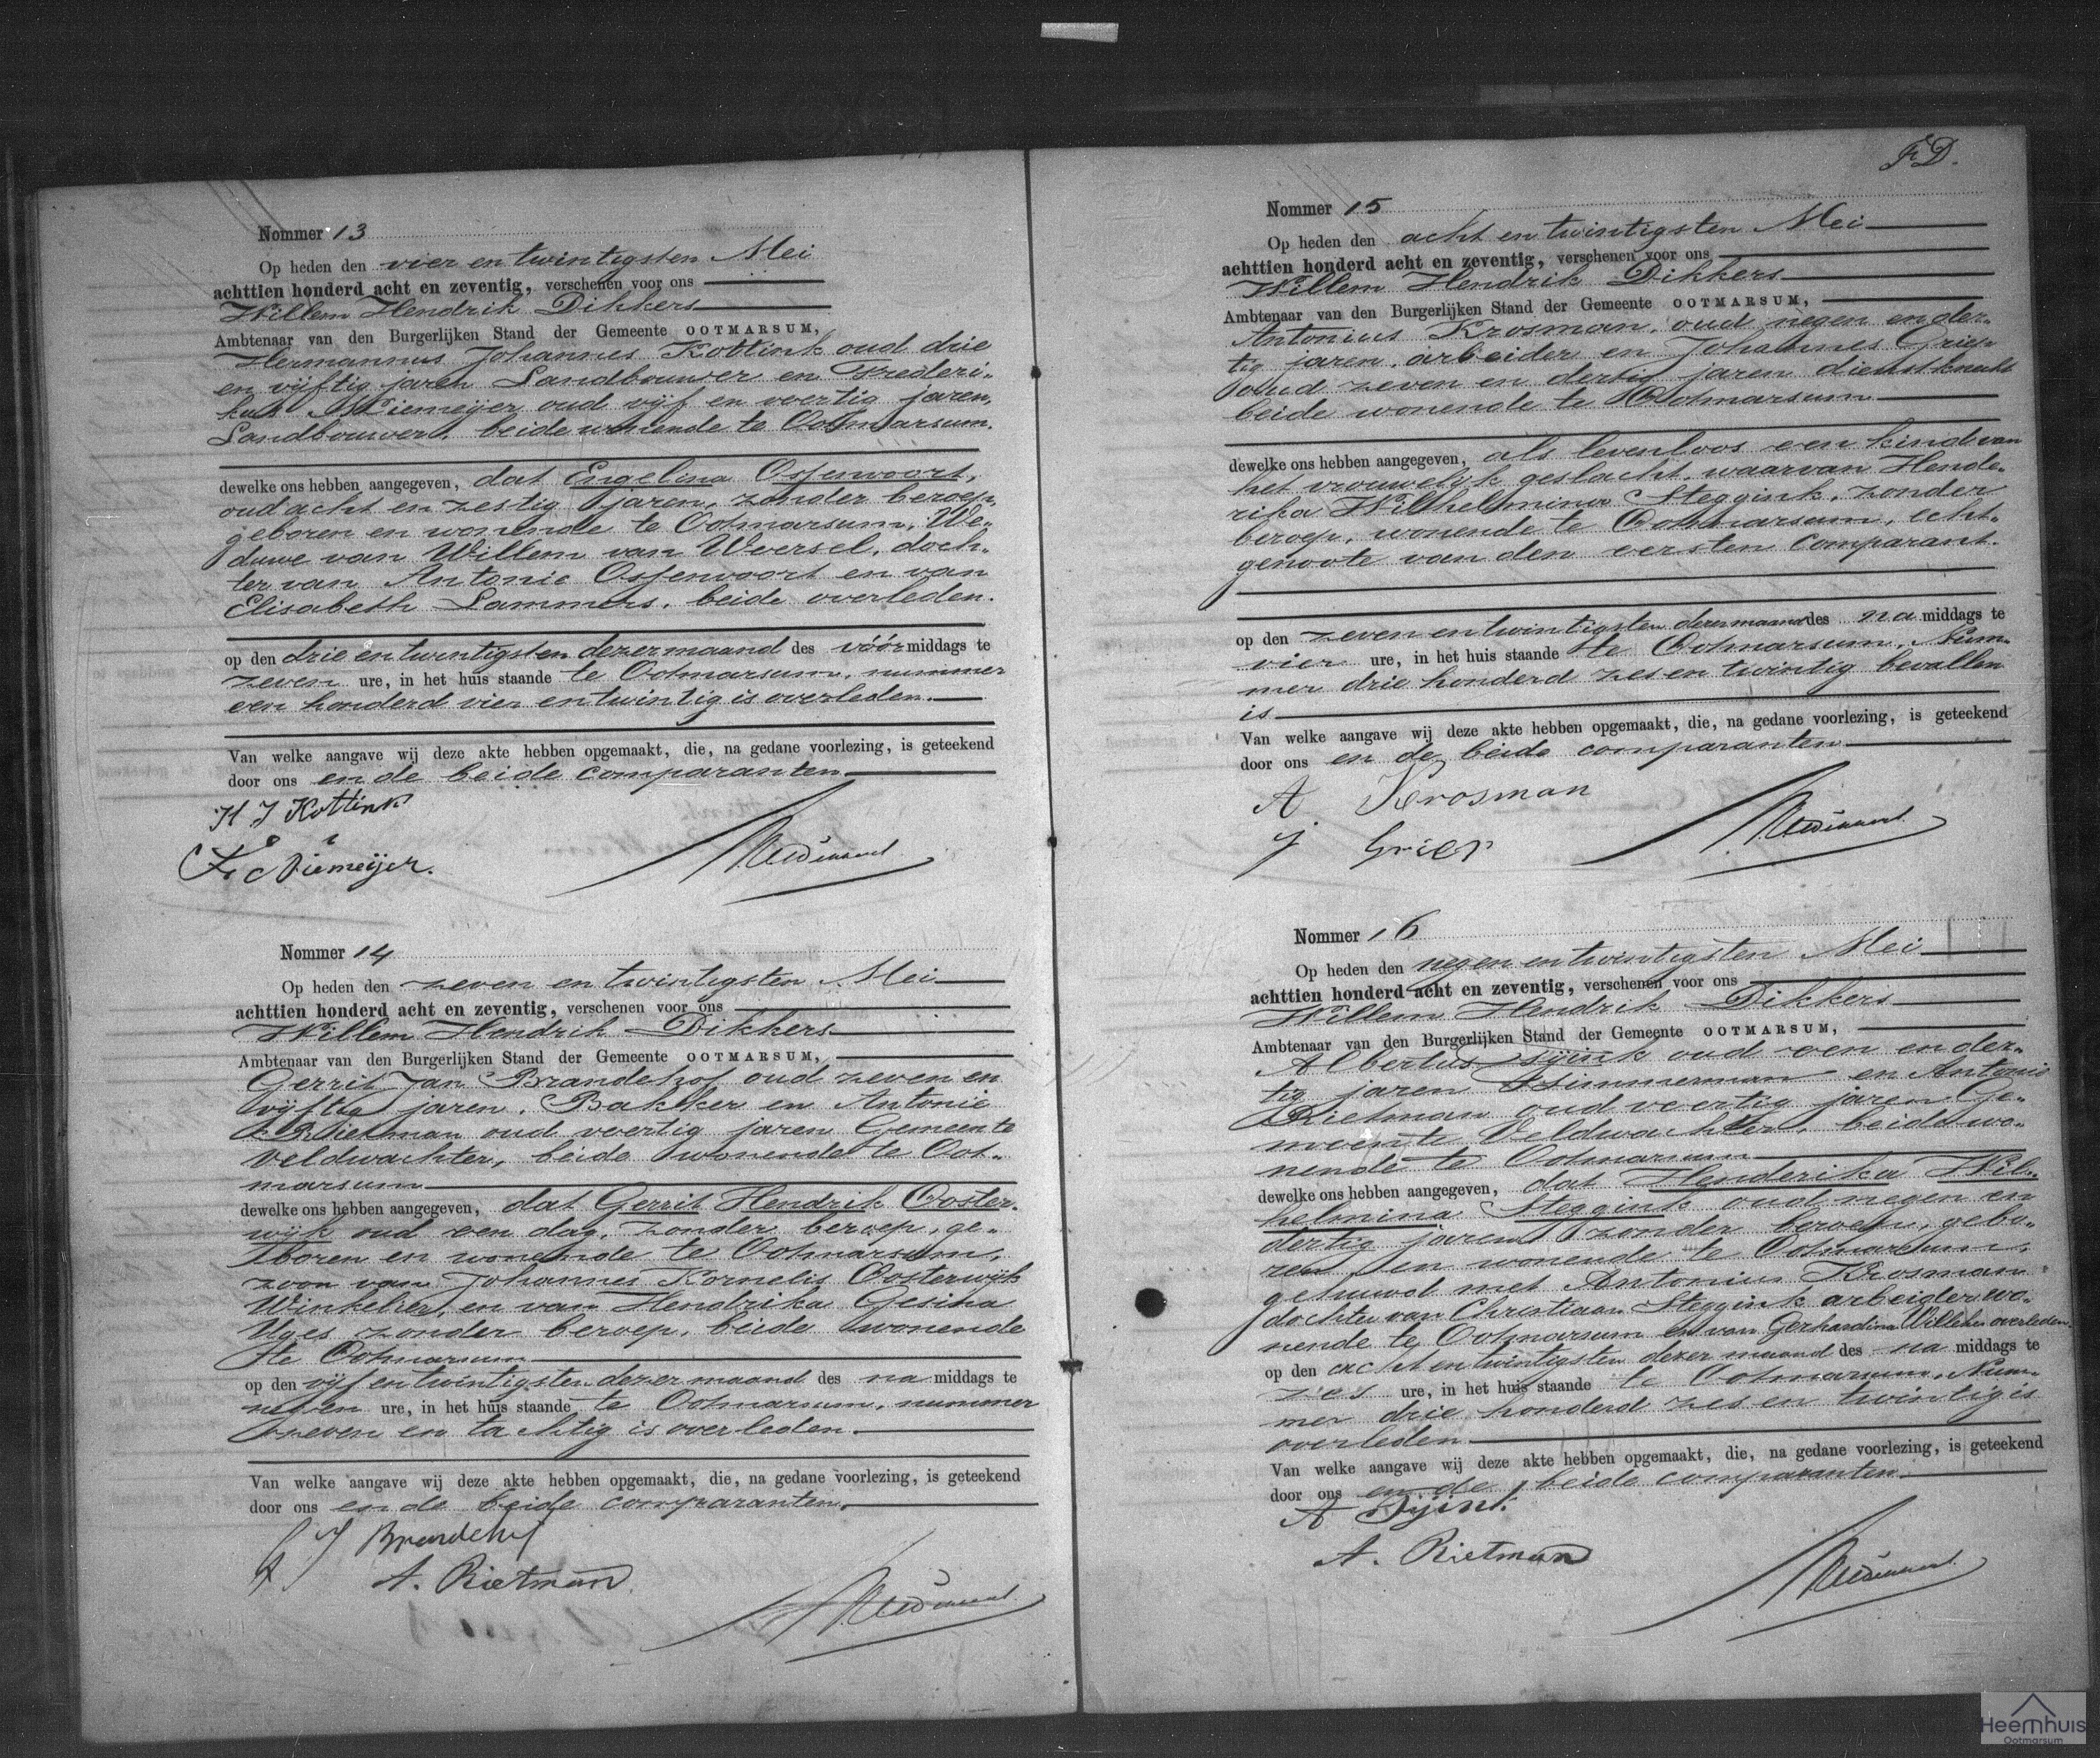 Nommer 13
Op heden den vier en twintigsten Mei
achttien honderd acht en zeventig, verschenen voor ons
Willem Hendrik Dikkers
Ambtenaar van den Burgerlijken Stand der Gemeente OOTMARSUM,
Hermannus Johannes Kottink oud drie
en vijftig jaren Landbouwer en Frederi-
kus Niemeijer oud vijf en veertig jaren,
Landbouwer, beide wonende te Ootmarsum.
dewelke ons hebben aangegeven, dat Engelina Ossenvoort,
oud acht en zestig jaren, zonder beroep,
geboren en wonende te Ootmarsum, We-
duwe van Willem van Weersel, doch-
ter van Antonie Ossenvoort en van
Elisabeth Lammers, beide overleden.
op den drie en twintigsten dezer maand des vóórmiddags te
zeven ure, in het huis staande te Ootmarsum, nummer
een honderd vier en twintig is overleden.
Van welke aangave wij deze akte hebben opgemaakt, die, na gedane voorlezing, is geteekend
door ons en de beide comparanten
H J Kottink
F. Niemeijer.
Nommer 14
Op heden den zeven en twintigsten Mei
achttien honderd acht en zeventig, verschenen voor ons
Willem Hendrik Dikkers
Ambtenaar van den Burgerlijken Stand der Gemeente OOTMARSUM,
Gerrit Jan Brandehof oud zeven en
vijftig jaren, Bakker en Antonie
Rietman oud veertig jaren Gemeente
Veldwachter, beide wonende te Oot-
marsum
dewelke ons hebben aangegeven, dat Gerrit Hendrik Ooster-
wijk oud een dag, zonder beroep, ge-
boren en wonende te Ootmarsum,
zoon van Johannes Kornelis Oosterwijk
Winkelier, en van Hendrika Gesina
Uges zonder beroep, beide wonende
te Ootmarsum
op den vijf en twintigsten dezer maand des na middags te
negen ure, in het huis staande te Ootmarsum, nummer
zeven en tachtig is overleden.
Van welke aangave wij deze akte hebben opgemaakt, die, na gedane voorlezing, is geteekend
door ons en de beide comparanten.
G J Brandehof
A. Rietman
F.D.
Nommer 15
Op heden den acht en twintigsten Mei
achttien honderd acht en zeventig, verschenen voor ons
Willem Hendrik Dikkers
Ambtenaar van den Burgerlijken Stand der Gemeente OOTMARSUM,
Antonius Krosman, oud negen en der-
tig jaren, arbeider en Johannes Grier
oud zeven en dertig jaren dienstknecht
beide wonende te Ootmarsum
dewelke ons hebben aangegeven, als levenloos een kind van
het vrouwelijk geslacht, waarvan Hende-
rika Wilhelmina Steggink, zonder
beroep, wonende te Ootmarsum, echt-
genoote van den eersten Comparant.
op den zeven en twintigsten dezer maand des na middags te
vier ure, in het huis staande te Ootmarsum, Num-
mer drie honderd zes en twintig bevallen
is
Van welke aangave wij deze akte hebben opgemaakt, die, na gedane voorlezing, is geteekend
door ons en de beide comparanten
A Krosman
J. Grier
Nommer 16
Op heden den negen en twintigsten Mei
achttien honderd acht en zeventig, verschenen voor ons
Willem Hendrik Dikkers
Ambtenaar van den Burgerlijken Stand der Gemeente OOTMARSUM,
Albertus Sijink oud een en der-
tig jaren Timmerman en Antonie
Rietman oud veertig jaren Ge-
meente Veldwachter, beide wo-
nende te Ootmarsum
dewelke ons hebben aangegeven, dat Henderika Wil-
helmina Steggink oud negen en
dertig jaren zonder beroep, gebo-
ren en wonende te Ootmarsum,
gehuwd met Antonius Krosman
dochter van Christiaan Steggink arbeider wo-
nende te Ootmarsum en van Gerhardina overleden.
op den acht en twintigsten dezer maand des na middags te
zes ure, in het huis staande te Ootmarsum, Num-
mer drie honderd zes en twintig is
overleden
Van welke aangave wij deze akte hebben opgemaakt, die, na gedane voorlezing, is geteekend
door ons en de beide comparanten
A Sijink
A. Rietman
Heemhuis
Ootmarsum